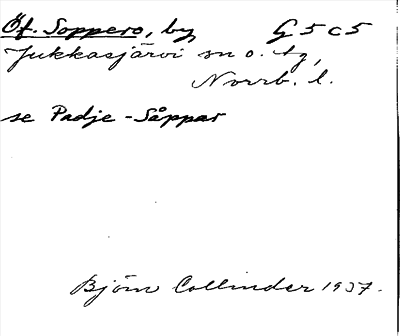 Öf. Soppero, by G 5 c 5
Jukkasjärvi sn o. tg,
Norrb. l.
se Padje-Såppar
Björn Collinder 1937.